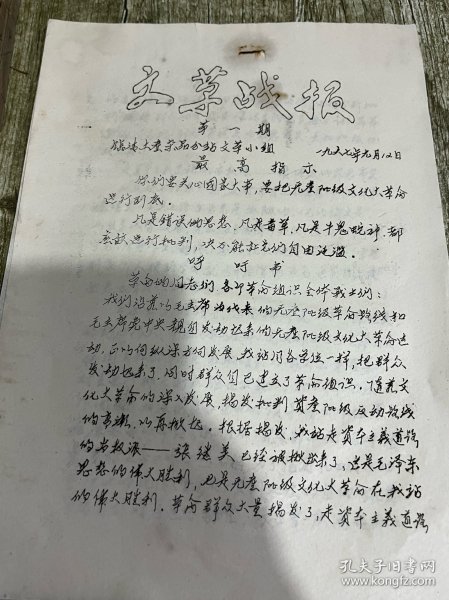 文革战报
第一期
旗语土畜药品分站文革小组 一九六七年元月12日
最高指示
你们要关心国家大事，要把无产阶级文化大革命
进行到底。
凡是错误的思想，凡是毒草，凡是牛鬼蛇神，都
应该进行批判，决不能让它们自由泛滥。
呼吁书
革命的同志们，各革命组织全体战士们：
我们沿着以毛主席为代表的无产阶级革命路线和
毛主席党中央亲自发动起来的无产阶级文化大革命运
动，正以向纵深方向发展，我站同各单位一样，把群众
发动起来了，同时群众自己建立了革命组织，随着文
化大革命的深入发展，揭发批判资产阶级反动路线
的高潮，以再掀起。根据揭发，我站走资本主义道路
的当权派——张继美已经被揪出来了，这是毛泽东
思想的伟大胜利，也是无产阶级文化大革命在我站
的伟大胜利。革命群众大量揭发了，走资本主义道路
孔夫子旧书网
kongfz.com